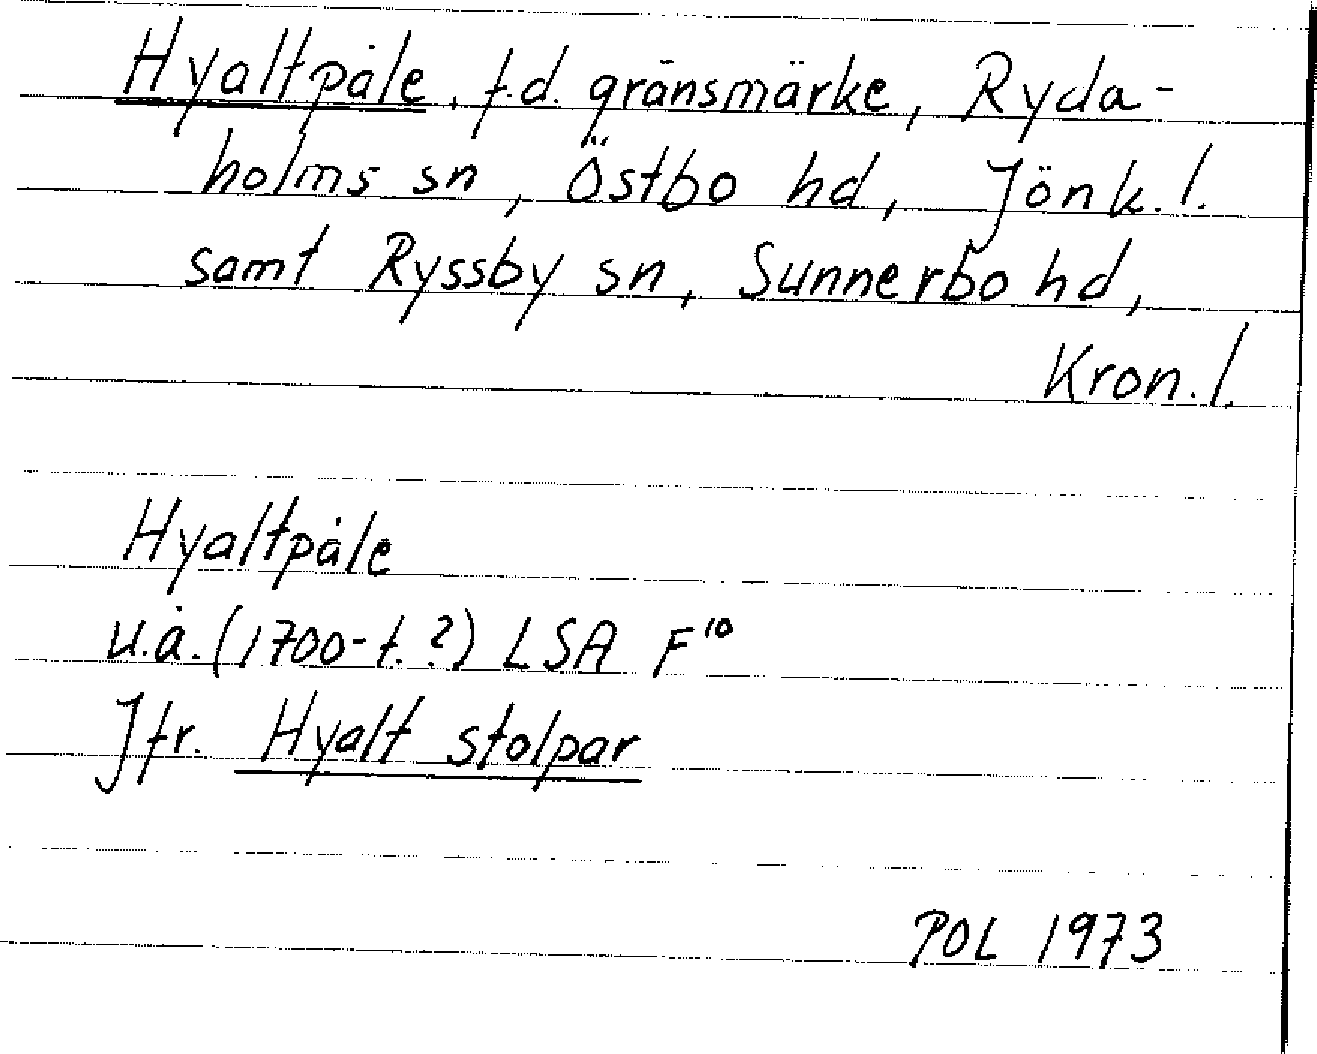 Hyaltpåle, f.d. gränsmärke, Ryda-
holms sn, Östbo hd, Jönk. l.
samt Ryssby sn, Sunnerbo hd,
Kron. l.
Hyaltpåle
u.å. (1700-t.?) LSA F¹⁰
Jfr. Hyalt stolpar
POL 1973